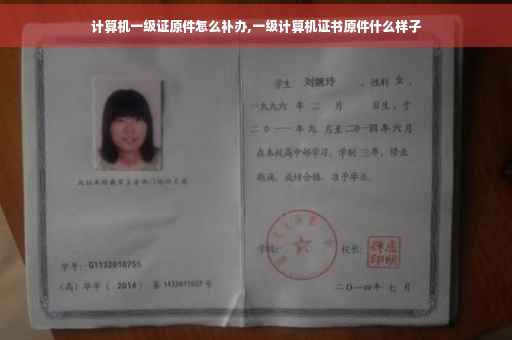 计算机一级证原件怎么补办,一级计算机证书原件什么样子
学生 刘婉玲 ,性别 女 ,
一九九六 年 二 月 日生,于
二〇一一 年 九 月至 二〇一四 年 六 月
在本校高中部学习,学制 三 年,修业
期满,成绩合格,准予毕业。
学校:
校长:
二〇一四年 七 月
学号: G1132010755
(高)毕字( 2014 )第 1432011027 号